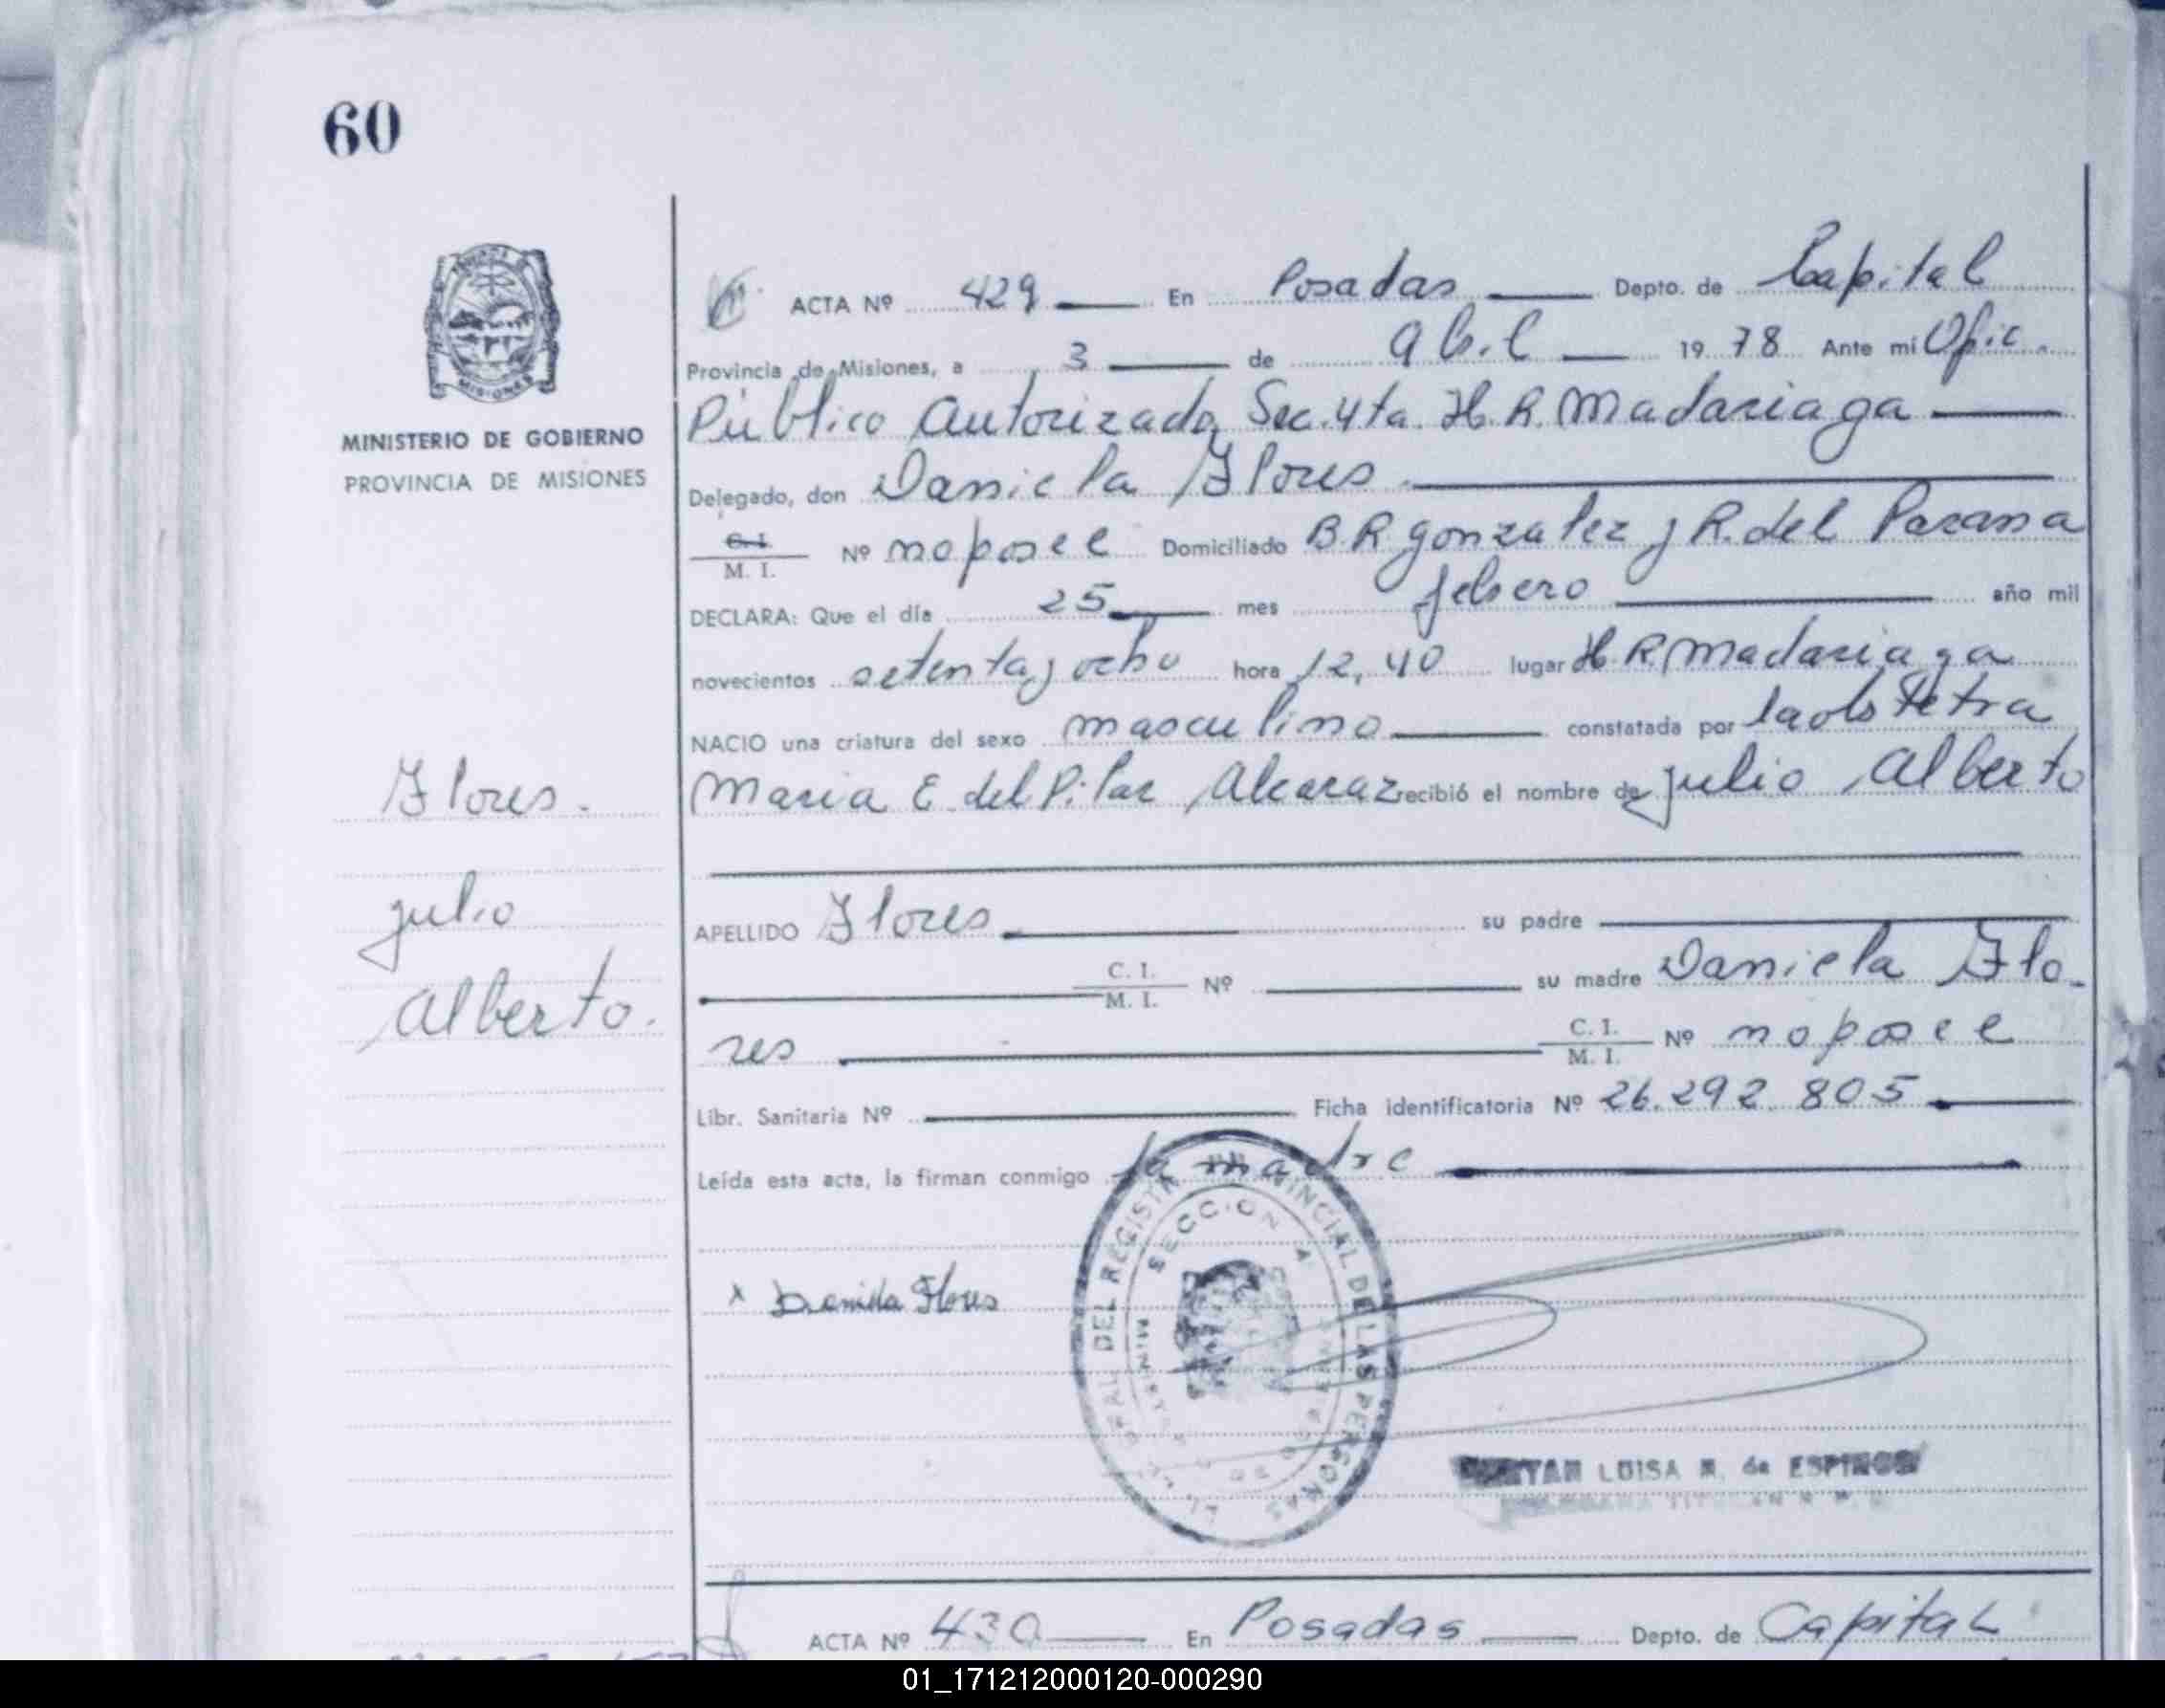 60
MINISTERIO DE GOBIERNO
PROVINCIA DE MISIONES
Flores.
Julio
Alberto.
ACTA Nº 429 En Posadas Depto. de Capital
Provincia de Misiones, a 3 de abril 1978 Ante mi Ofic.
Público Autorizado Sec. 4ta. H. R. Madariaga
Delegado, don Daniela Flores
C. I. / M. I. Nº no posee Domiciliado B. R. Gonzalez y R. del Parana
DECLARA: Que el día 25 mes febrero año mil
novecientos setenta y ocho hora 12,40 lugar H. R. Madariaga
NACIO una criatura del sexo masculino constatada por la obstetra
Maria E. del Pilar Alcaraz recibió el nombre de Julio Alberto
APELLIDO Flores su padre
C. I. / M. I. Nº su madre Daniela Flo-
res C. I. / M. I. Nº no posee
Libr. Sanitaria Nº Ficha identificatoria Nº 26.292.805
Leída esta acta, la firman conmigo la madre
x Daniela Flores
DEL REGISTRO PROVINCIAL DE LAS PERSONAS
SECCION
LUISA de ESPINOSA
ACTA Nº 430 En Posadas Depto. de Capital
01_171212000120-000290